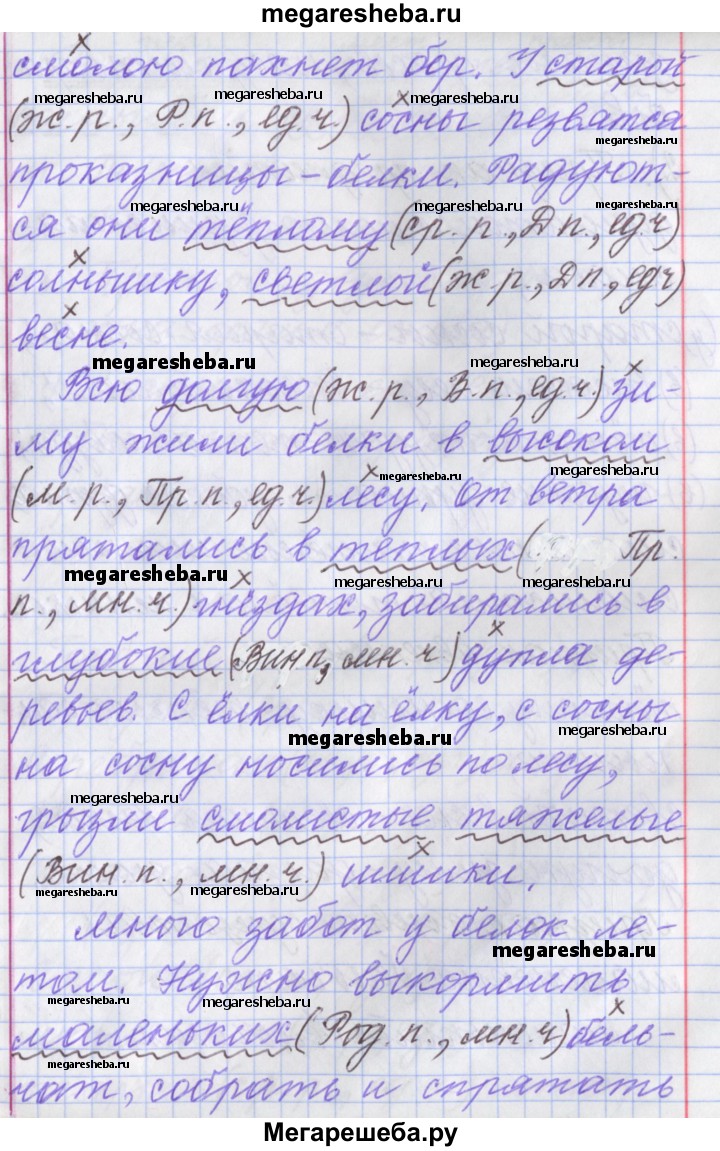 megaresheba.ru
смолою пахнет бор. У старой
megaresheba.ru megaresheba.ru megaresheba.ru
(ж.р., Р.п., ед.ч.) сосны резвятся
megaresheba.ru
проказницы-белки. Радуют-
megaresheba.ru megaresheba.ru
ся они тёплому (ср.р., Д.п., ед.ч)
солнышку, светлой (ж.р., Д.п., ед.ч)
весне.
megaresheba.ru megaresheba.ru
Всю долгую (ж.р., В.п., ед.ч.) зи-
му жили белки в высоком
megaresheba.ru megaresheba.ru
(м.р., Пр.п., ед.ч.) лесу. От ветра
прятались в теплых ( Пр.
megaresheba.ru megaresheba.ru megaresheba.ru
п., мн.ч.) гнёздах, забирались в
глубокие (Вин.п, мн.ч) дупла де-
ревьев. С ёлки на ёлку, с сосны
megaresheba.ru megaresheba.ru
на сосну носились по лесу,
megaresheba.ru
грызли смолистые тяжелые
(Вин. п., мн.ч.) шишки.
megaresheba.ru megaresheba.ru megaresheba.ru
Много забот у белок ле-
megaresheba.ru
том. Нужно выкормить
megaresheba.ru megaresheba.ru
маленьких (Род.п., мн.ч) бель-
megaresheba.ru megaresheba.ru
чат, собрать и спрятать
Мегарешеба.ру